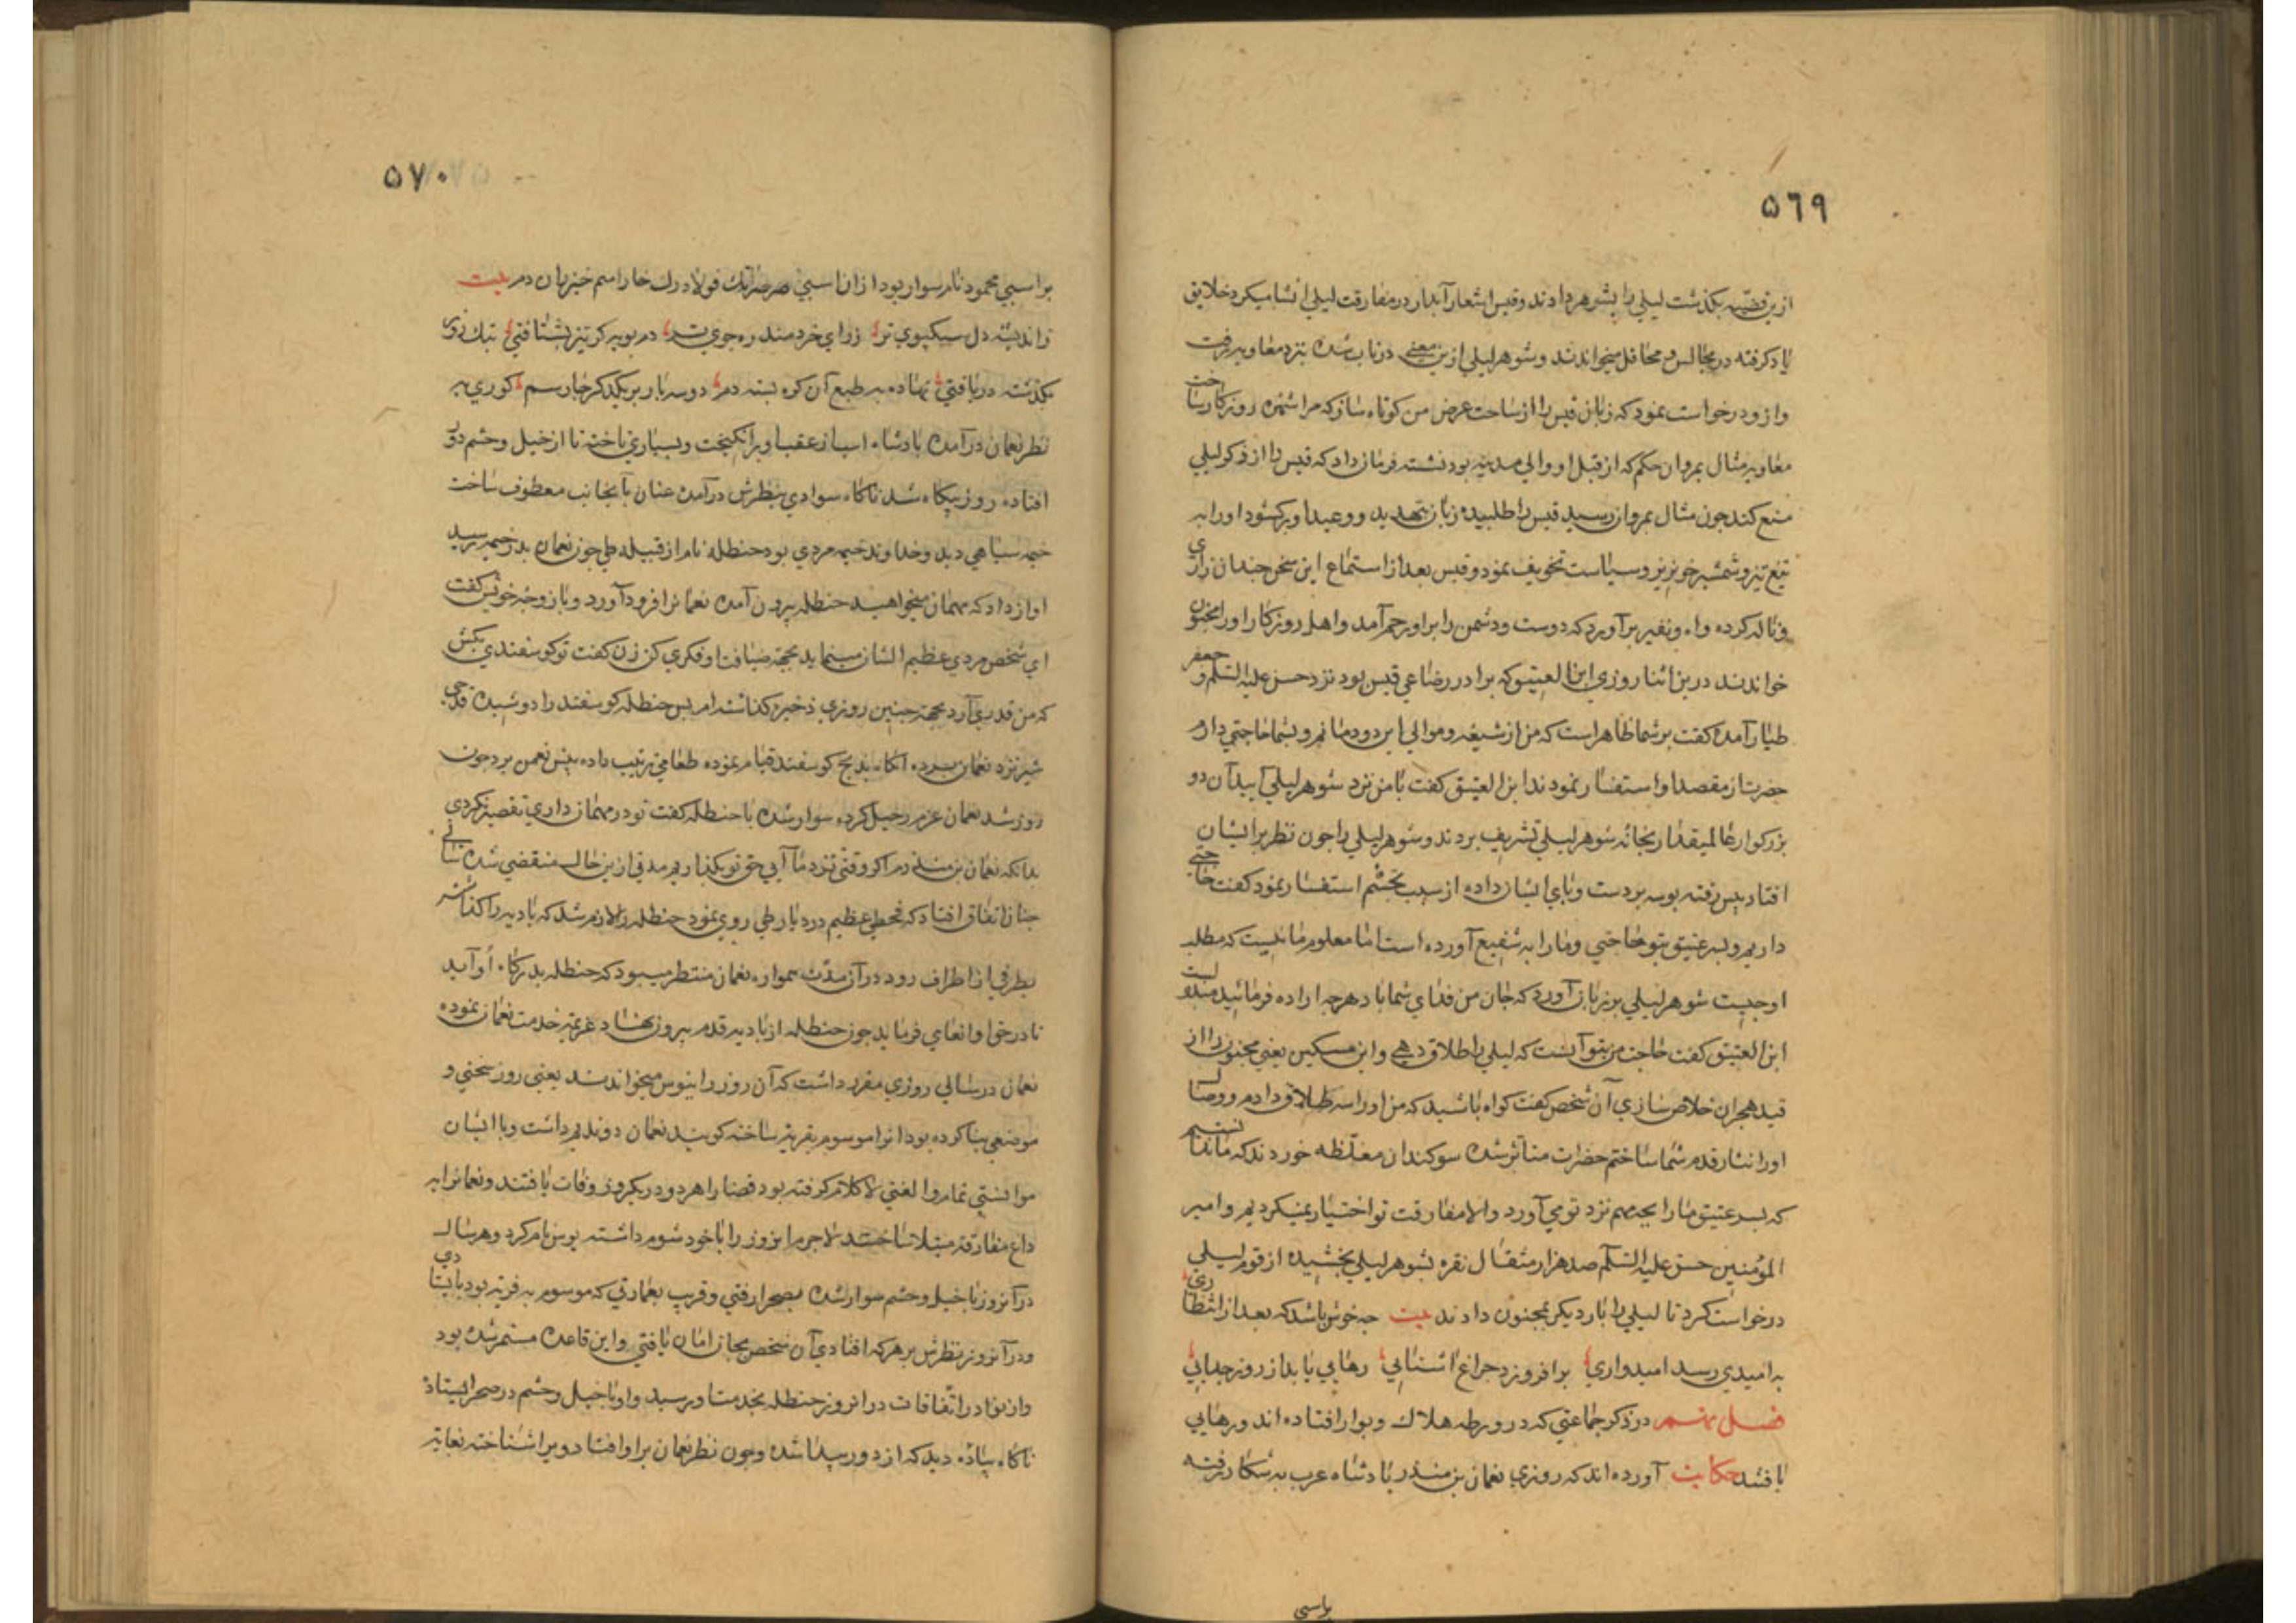 ٥٦٩
ازین قضیه بگذشت لیلی را بشوهر دادند و قیس اشعار آبدار در مفارقت لیلی انشا میکرد خلایق
یاد کرفته در مجالس و محافل میخواندند و شوهر لیلی ازین معنی در تاب شده بنزد معاویه رفت
و ازو درخواست نمود که زبان قیس را از ساحت عرض من کوتاه ساز که مرا شهره روزکار ساخت
معاویه مثال بمروان حکم که از قبل او والی مدینه بود نشته فرمان داد که قیس را از ذکر لیلی
منع کند جون مثال بمروان رسید قیس را طلبیده زبان بتهدید و وعید او برکشود او را به
تیغ تیز و شمشیر خونریز و سیاست تخویف نمود و قیس بعد از استماع این سخن جندان زاری
و ناله کرده واه و نفیر برآورد که دوست و دشمن را برا و رحم آمد و اهل روزکار او را مجنون
خواندند درین اثنا روزی ابن العتیق که برادر رضاعی قیس بود نزد حسن علیه السلم و جعفر
طیار آمده کفت بر شما ظاهر است که من از شیعه و موالی این دودمانم و بشما حاجتی دارم
حضرت از مقصد او استفسار نمودند ابن العتیق کفت با من نزد شوهر لیلی آیید آن دو
بزرکوار عالمیقدار بخانه شوهر لیلی تشریف بردند و شوهر لیلی را جون نظر بر ایشان
افتاد پیش رفته بوسه بر دست و پای ایشان داده از سبب تجشم استفسار نمود کفت حاجتی
داریم و بسر عتیق بتو حاجتی و ما را به شفیع آورده است اما معلوم ما نیست که مطلب
او جیست شوهر لیلی بر زبان آورد که جان من فدای شما باد هرجه اراده فرمائید مبذولست
ابن العتیق کفت حاجت من بتو آنست که لیلی را طلاق دهی و این مسکین یعنی مجنون را از
قید هجران خلاص سازی آن شخص کفت کواه باشید که من او را سه طلاق دادم و وصال
او را نثار قدم شما ساختم حضرات متاثر شده سوکندان مغلظه خوردند که ما ندانستیم
که بسر عتیق ما را بجه مهم نزد تو می آورد والا مفارقت تو اختیار نمیکردیم و امیر
المؤمنین حسن علیه السلم صد هزار مثقال نقره بشوهر لیلی بخشیده از قوم لیلی
درخواست کرد تا لیلی را بار دیکر بمجنون دادند بیت جه خوش باشد که بعد از انتظاری
به امیدی رسد امیدواری برافروزد جراغ اشنایی رهایی یابد از روز جدایی
فصل نهم در ذکر جماعتی که در ورطه هلاک و بوار افتاده اند و رهایی
یافتند حکایت آورده اند که روزی نعمان بن منذر پادشاه عرب به شکار رفته
براسبی
٥٧٠
بر اسبی محمود نام سوار بود از ان اسبی صرصر تک فولاد رک خارا سم خیزران دم بیت
ز اندیشه دل سبکپوی تر ز رای خردمند ره جوی تر دم پویه کر تیز بشتافتی بتک روز
بگذشته دریافتی نهاده به طبع آن کره بسته دم دو سه بار بر یکدکر خار سم کوری به
نظر نعمان درآمده پادشاه اسب از عقب او برانکیخت و بسیاری تاخته تا از خیل و حشم دور
افتاده روز بیکاه شد ناکاه سوادی بنظرش درآمده عنان بآنجانب معطوف ساخت
خیمه سیاهی دید و خداوند خیمه مردی بود حنظله نام از قبیله طی جون نعمان بدر خیمه رسید
اواز داد که مهمان میخواهید حنظله بیرون آمده نعمانرا فرود آورد و با زوجه خویش کفت
ای شخص مردی عظیم الشان مینماید بجهة ضیافت او فکری کن زن کفت تو کوسفندی بکش
که من قدری آرد بجهة جنین روزی ذخیره کذاشته ام پس حنظله کوسفند را دوشیده قدحی
شیر نزد نعمان برده آنکاه بذبح کوسفند قیام نموده طعامی ترتیب داده پیش نعمن برد جون
روز شد نعمان عزم رحیل کرده سوار شده با حنظله کفت تو در مهمان داری تقصیر نکردی
بدانکه نعمان بن منذرم اکر وقتی نزد ما آیی حق تو بکذاریم مدتی ازین حال منقضی شده
جنان اتفاق افتاد که قحطی عظیم در دیار طی روی نمود حنظله را لازم شد که بادیه را کذاشته
بطرفی از اطراف رود در آن مدت همواره نعمان منتظر میبود که حنظله بدرکاه او آید
تا درخور او انعامی فرماید جون حنظله از بادیه قدم بیرون نهاد عزیمة خدمت نعمان نموده
نعمان در سالی روزی مقرر داشت که آن روز را بنوس میخواندند یعنی روز سختی و
موضعی بنا کرده بود انرا موسوم بقریة ساخته کویند نعمان دو ندیم داشت و با ایشان
موانستی تمام و الفتی لاکلام کرفته بود قضا را هر دو در یکروز وفات یافتند و نعمانرا به
داغ مفارقت مبتلا ساختند لاجرم انروز را با خود شوم داشته بوس نام کرد و هر سال
در آنروز با خیل و حشم سوار شده بصحرا رفتی و قریب بعمارتی که موسوم به قریه بود بایستادی
و در آنروز نظرش بر هرکه افتادی آن شخص بجان امان نیافتی و این قاعده مستمر شده بود
و از نوادر اتفاقات در انروز حنظله بخدمت او رسید و او با خیل و حشم در صحرا ایستاده
ناکاه پیاده دید که از دور پیدا شده و جون نظر نعمان بر او افتاد ویرا شناخته بغایة